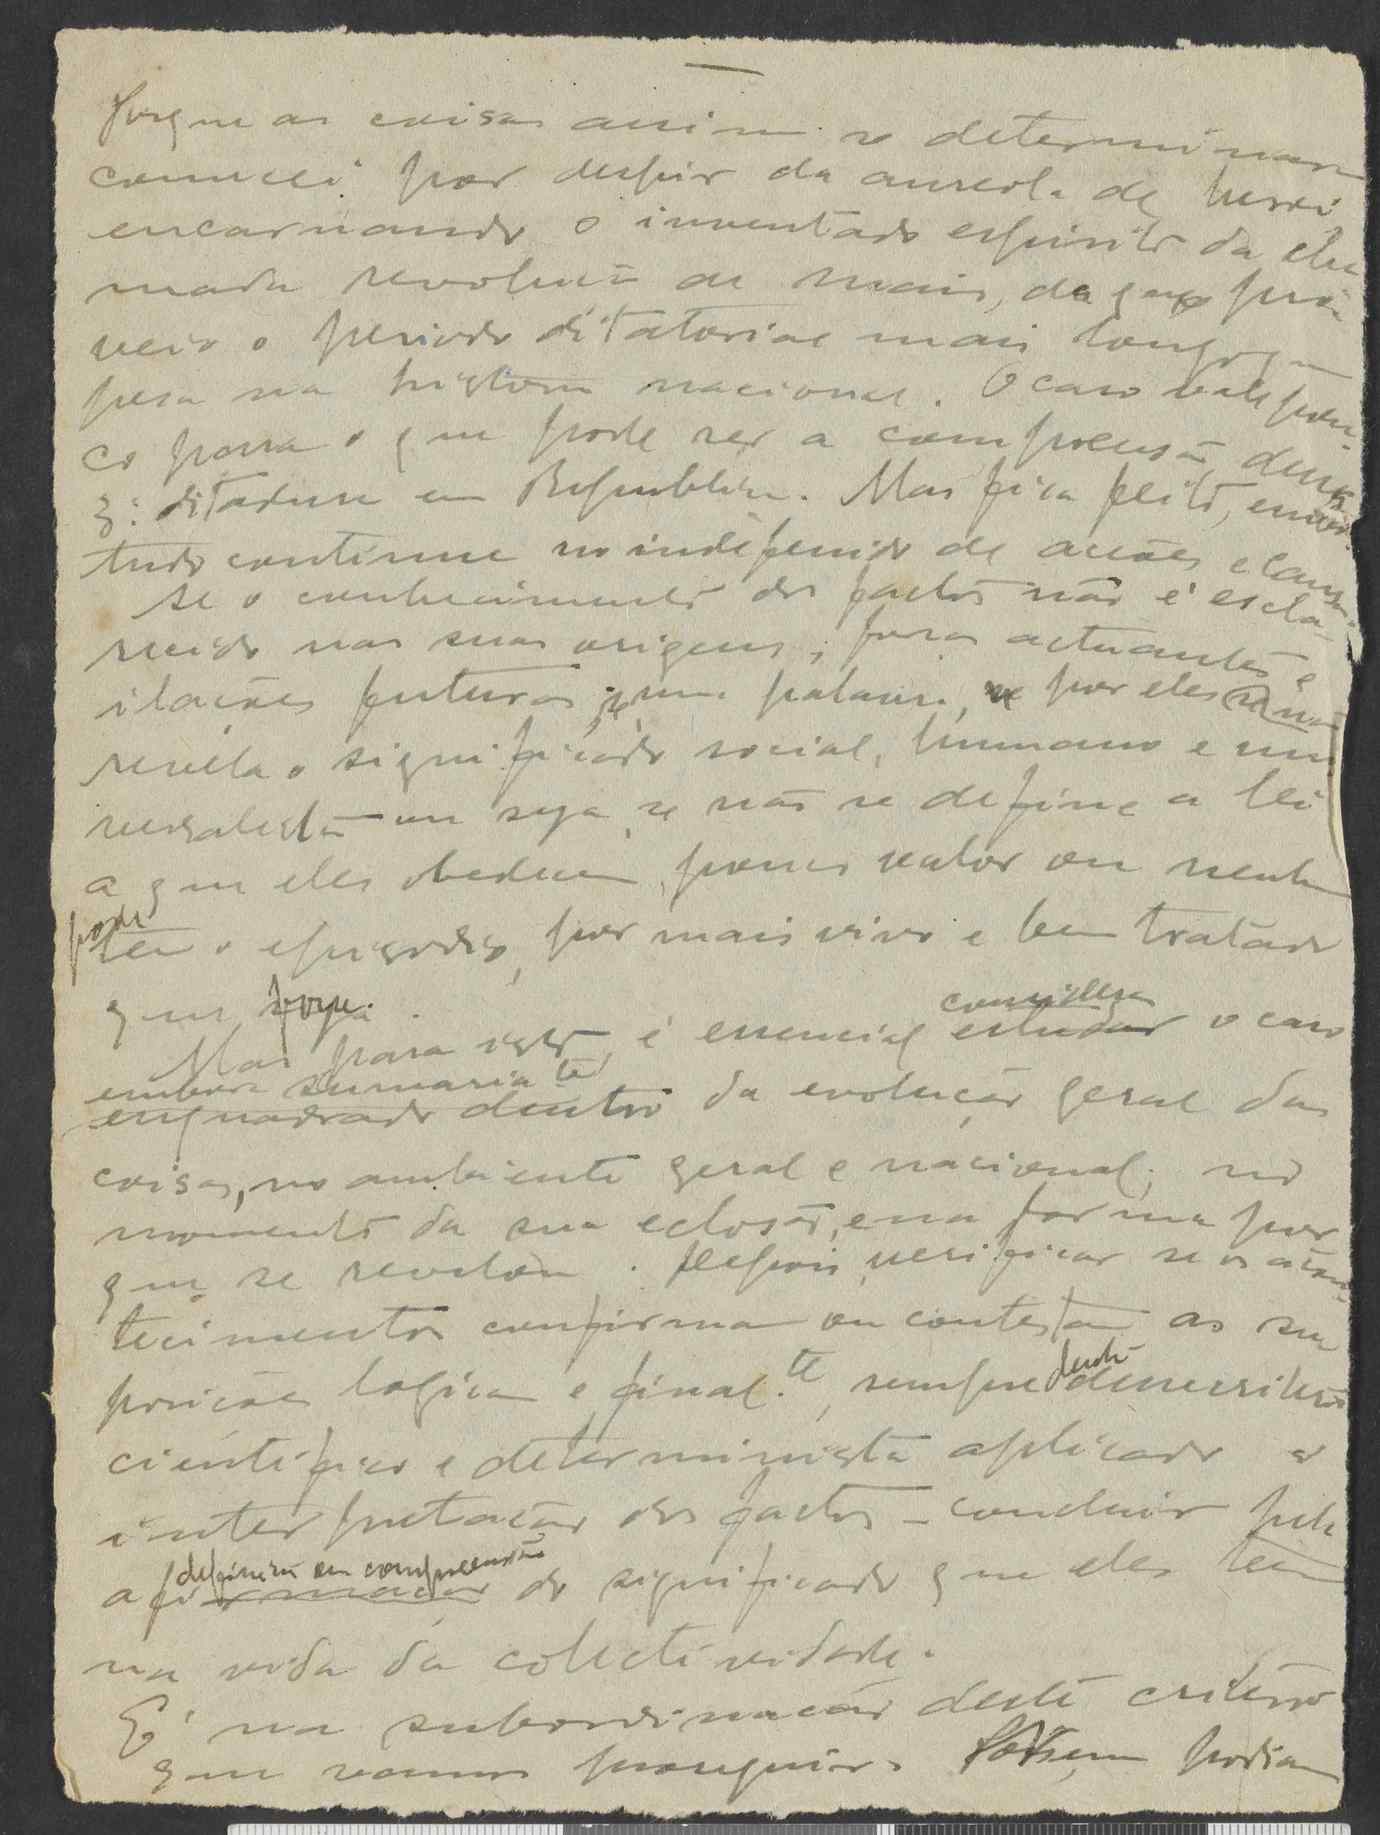 Porque as coisas assim se determinam
comecei por despir da aureola de heroi
encarnando o inventado espirito da cha
mada revolução de maio, da que pro
veio o periodo ditatorial mais longo que
pesa na historia nacional. O caso vale pou-
co para o que pode ser a compreensão
: ditadura em Republica. Mas fica feito, embora
tudo continue no indefenido de acções e causas.
Se o conhecimento dos factos não é escla-
recido nas suas origens, forças actuantes e
ilações futuras; numa palavra, se por eles se não
revela o significado social, humano e uni
versalista ou seja, se não se define a lei
a que eles obedecem, pouco valor ou nenhum
pode
ter o episodio, por mais vivo e bem tratado
que fosse.
considerar
Mas para isso, é essencial estudar o caso
embora sumariate
enquadrado dentro da evolução geral das
coisas, no ambiente geral e nacional, no
momento da sua eclosão, e na forma por
que se revelou. Depois, verificar se os acon-
tecimentos confirmam ou contestam as su
posições logicas e final.te, sempre dentro dum criterio
cientifico e determinista aplicado á
interpretação dos factos - concluir pela
definição ou compreensão
afirmação do significado que eles teem
na vida da colectividade.
É na subordinação deste criterio
que vamos proseguir. podiam